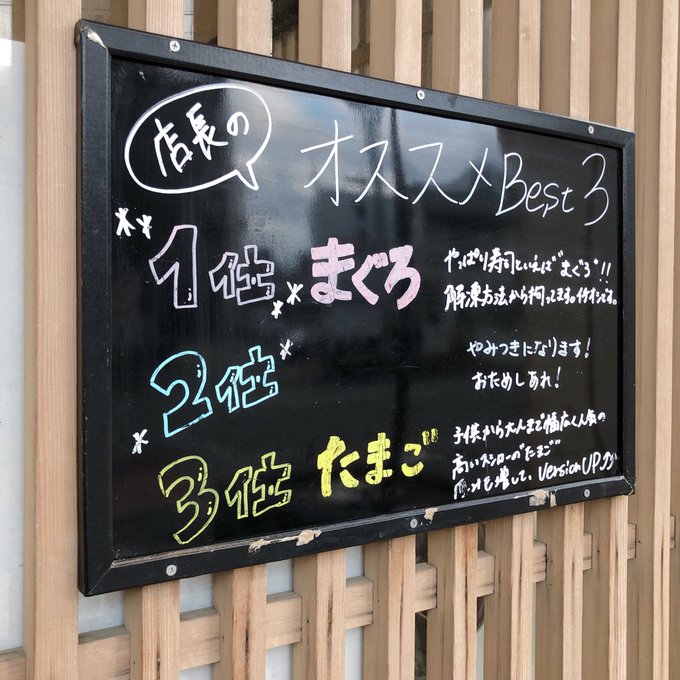 店長の
オススメBest 3
1位 まぐろ
やっぱり寿司といえば"まぐろ"!!
解凍方法から拘ってます。イチオシです。
2位
やみつきになります!
おためしあれ!
3位 たまご
子供から大人まで幅広く人気の
高いスシローの"たまご"
を増して、Version UP